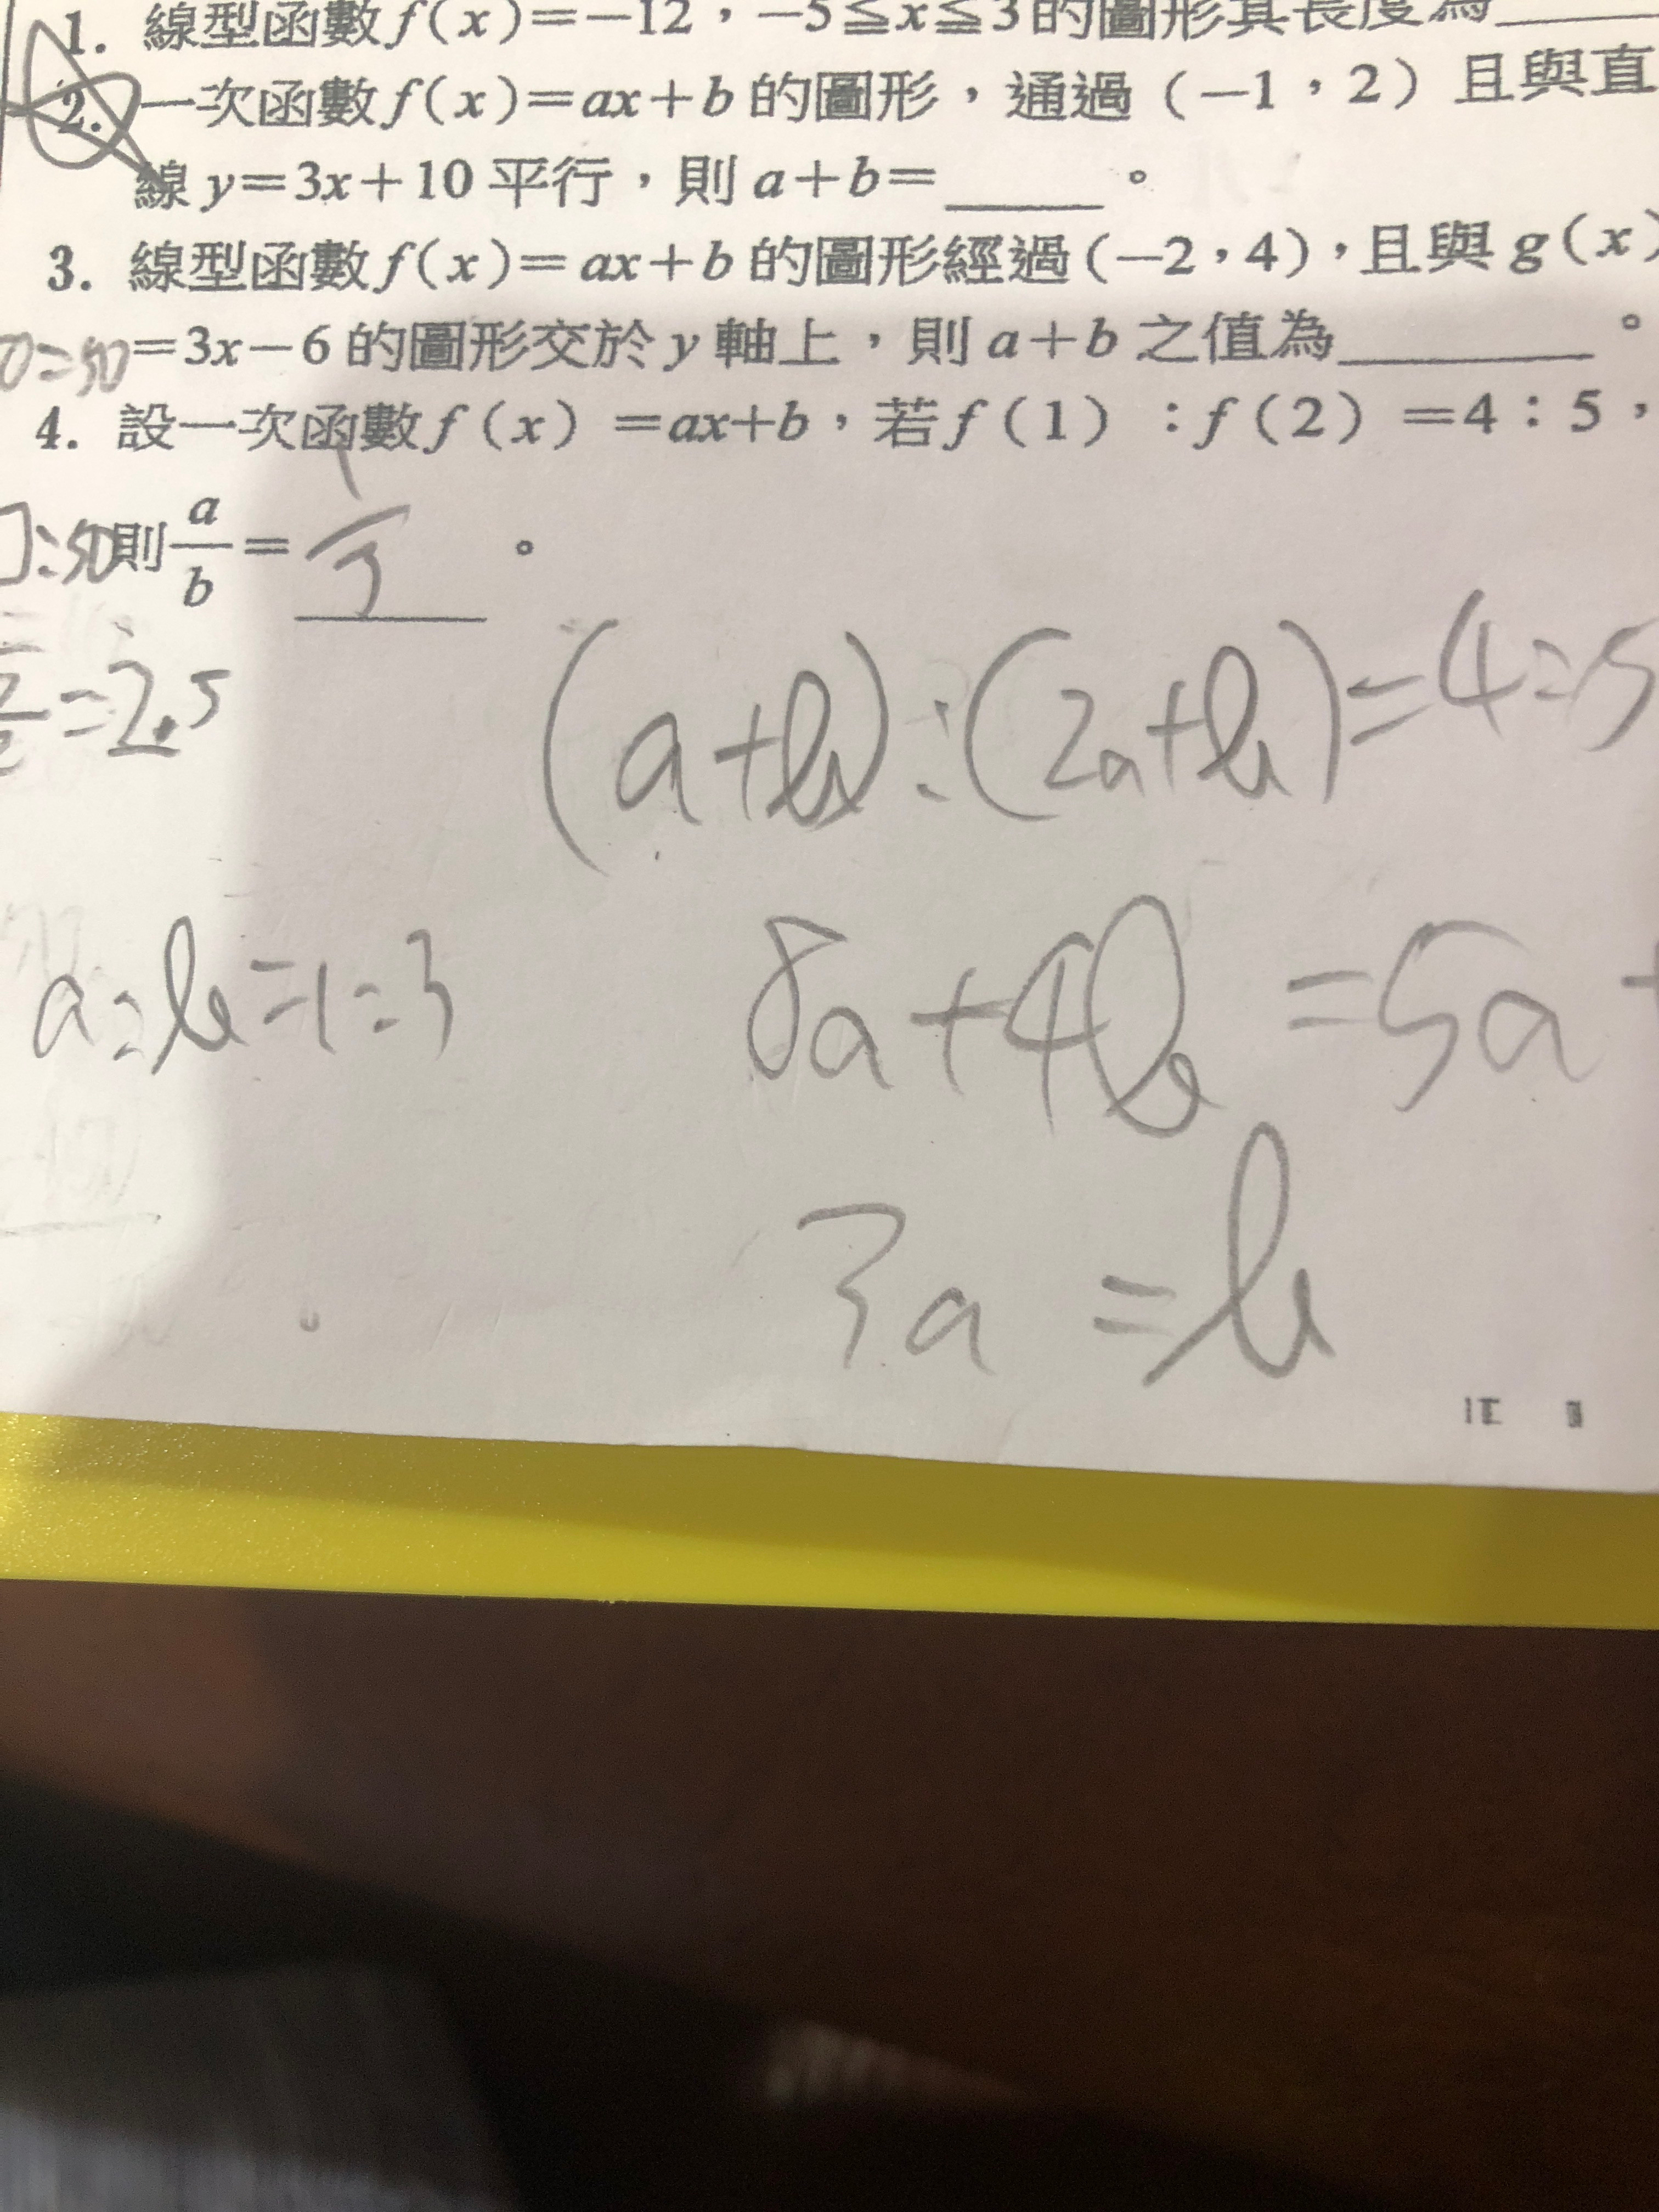 1. 線型函數f(x)=-12,-5≦x≦3的圖形其長度為____
2. 一次函數f(x)=ax+b的圖形,通過(-1,2)且與直
線y=3x+10平行,則a+b=____。
3. 線型函數f(x)=ax+b的圖形經過(-2,4),且與g(x)
=3x-6的圖形交於y軸上,則a+b之值為____。
4. 設一次函數f(x)=ax+b,若f(1):f(2)=4:5,
則a/b=1/3。
=2.5
(a+b):(2a+b)=4:5
a:b=1:3
8a+4b=5a+
3a=b